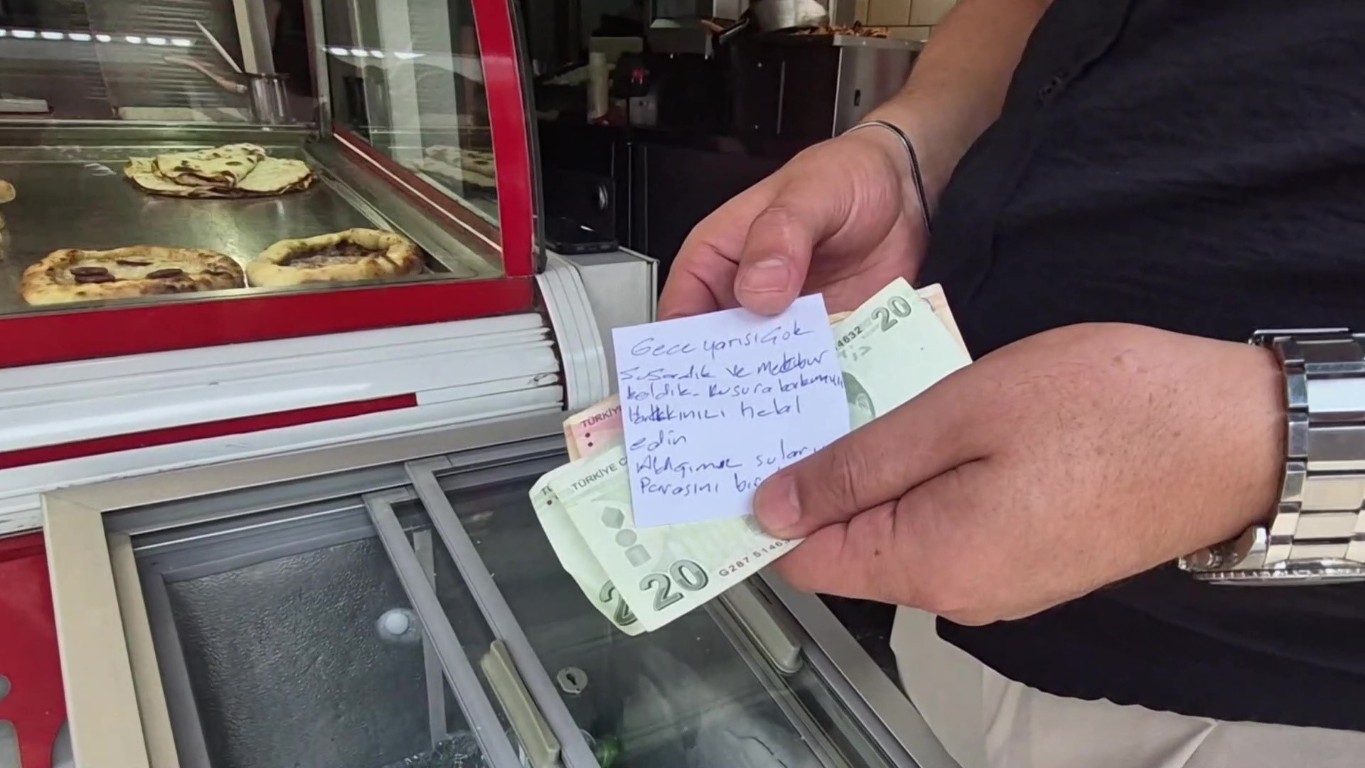 Gece yarısı Çok
Susadık ve mecbur
kaldık. Kusura bakmayın
Hakkınızı helal
edin
Aldığımız suların
Parasını
4632
20
TÜRKİYE
TÜRKİYE C
20
G287 5146
2